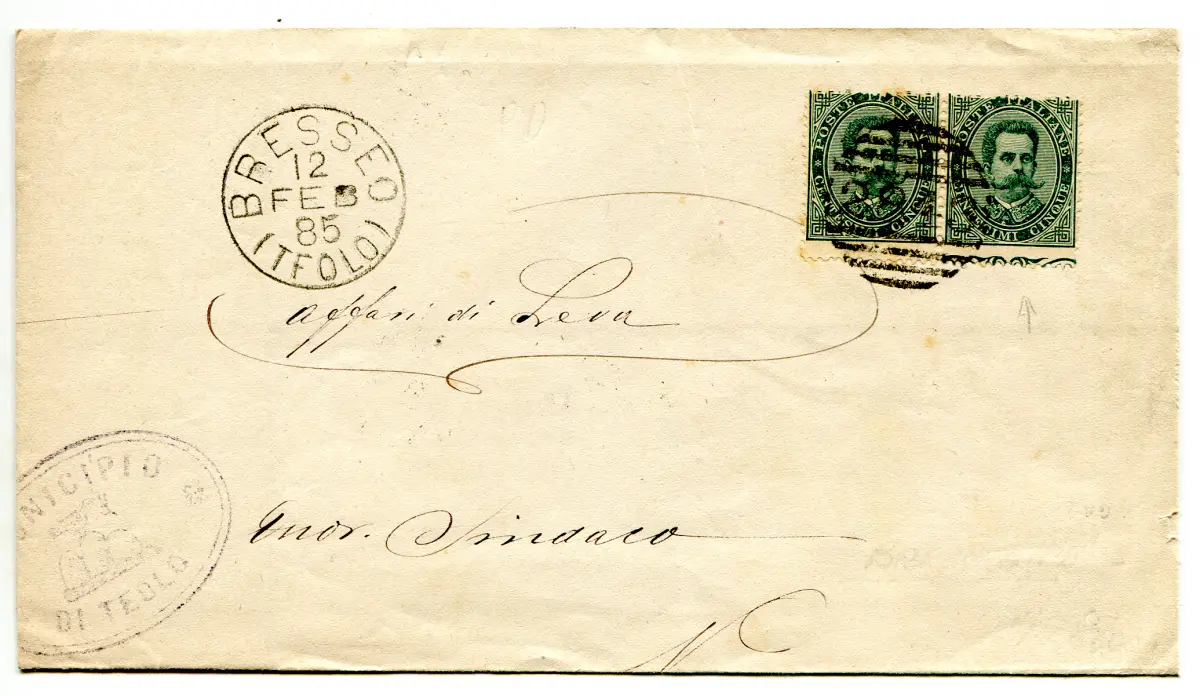 BRESSEO
12
FEB
85
(TEOLO)
POSTE ITALIANE
CENTESIMI CINQUE
POSTE ITALIANE
CENTESIMI CINQUE
Affari di Leva
MUNICIPIO
DI TEOLO
Onor. Sindaco